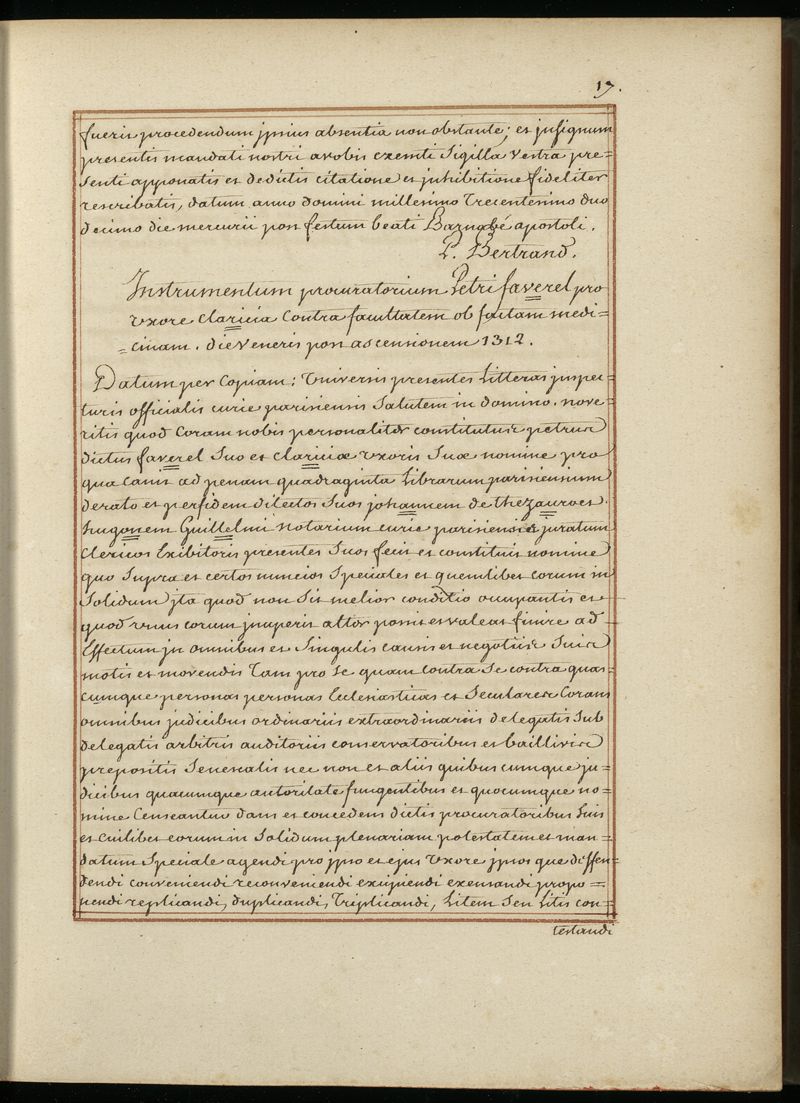 17.
fuerit procedendum jpsius absentia non obstante; et jnsignum
presentis mandati nostri avobis exemti Sigilla vestra pre=
senti apponatis et dedictis citatione et jnhibitione fideliter
rescribatis, datum anno domini millesimo Trecentesimo duo
decimo die mercurii post festum beati Barnabé apostoli.
P. Bertrand.
Instrumentum procuratorium Petri faverel pro
vxore claricia Contra facultatem ob factam medi=
=cinam. die Veneris post ascensionem 1312.
Datum per Copiam: Universis presentes Litteras jnspec=
turis officialis curie parisiensis Salutem in domino. nove=
ritis quod Coram nobis personaliter constitutus petrus
dictus faverel Suo et clariciæ vxoris Suæ nomine pro
qua cavit ad penam quadraginta Librarum parisiensium
derato et perfidem dilectos Suos johannem de thezauro et
hugonem Guillelmi Notarium curie parisiensis juratum
Clericos Exibitoris presentes Suos fecit et constituit nomine
quo Supra et certos nuncios Speciales et quemlibet eorum in
Solidum jta quod non Sit melior conditio occupantis et
quod vnus eorum jnceperit alter possit et valeat finire ad
Effectum jn omnibus et Singulis causis et negotiis Suis
motis et movendis Tam pro Se quam contra Se contra quas=
cumque personas personas Ecclesiasticas et Seculares Coram
omnibus judicibus ordinariis extraordinariis delegatis Sub
delegatis arbitris auditoriis conservatoribus et baillivis
prepositis Senescalis nec non et aliis quibus cumque ju=
dicibus quacumque autoritate fungentibus et quocumque no=
mine Censeantur dans et concedens dictis procuratoribus Suis
et cuilibet eorum in Solidum plenariam potestatem et man=
datum Speciale agendi pro jpso et ejus vxore jpsos que deffen=
dendi conveniendi reconveniendi excipiendi exensandi propo=
nendi replicandi, duplicandi, Triplicandi, Litem Seu Litis con=
testandi